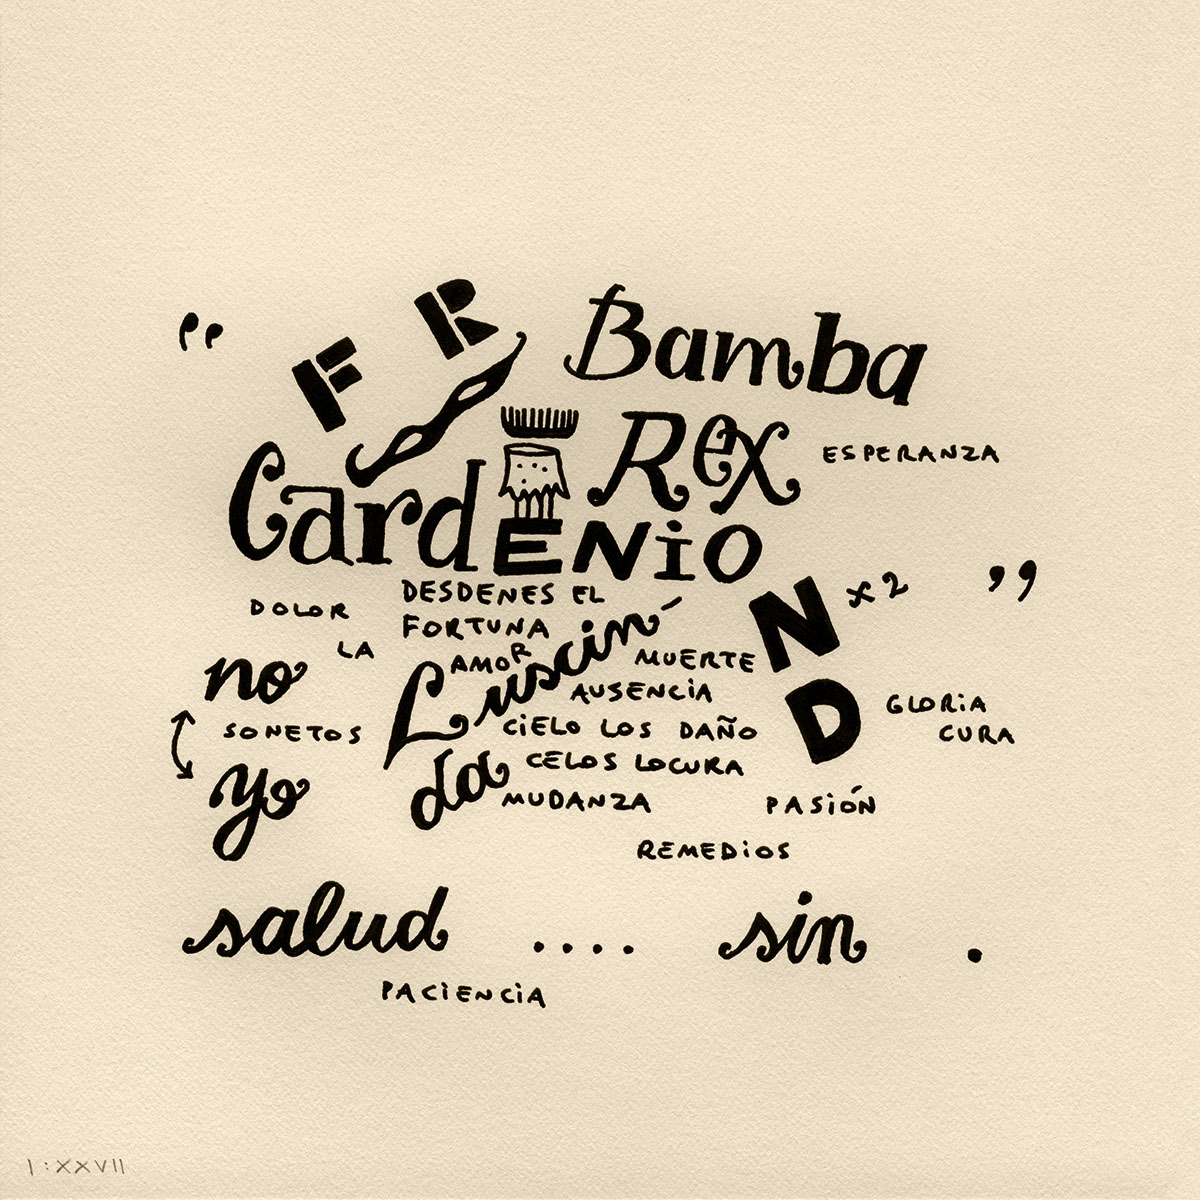 “ F R Bamba
Rex ESPERANZA
CardENiO
DESDENES EL
DOLOR FORTUNA N x2 ”
LA AMOR MUERTE
no Luscinda AUSENCiA D GLORiA
SONETOS CiELO LOS DAÑO CURA
yo CELOS LOCURA
MUDANZA PASiÓN
REMEDiOS
salud .... sin .
PACiENCiA
I:XXVII